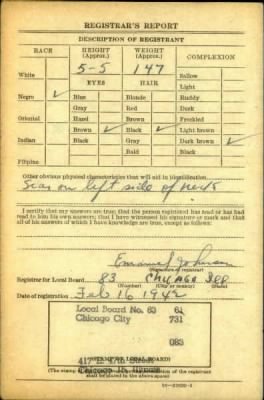 REGISTRAR'S REPORT
DESCRIPTION OF REGISTRANT
RACE HEIGHT (Approx.) WEIGHT (Approx.) COMPLEXION
5-5 147
White Sallow
EYES HAIR Light
Negro ✓ Blue Blonde Ruddy
Gray Red Dark
Oriental Hazel Brown Freckled
Brown ✓ Black ✓ Light brown
Indian Black Gray Dark brown ✓
Bald Black
Filipino
Other obvious physical characteristics that will aid in identification
Scar on left side of neck
I certify that my answers are true; that the person registered has read or has had
read to him his own answers; that I have witnessed his signature or mark and that
all of his answers of which I have knowledge are true, except as follows:
Johnson
(Signature of registrar)
Registrar for Local Board 83 Chicago Ill
(Number) (City or county) (State)
Date of registration Feb 16 1942
Local Board No. 83 61
Chicago City 731
083
417 E. 47th Street
Chicago, Illinois
(STAMP OF LOCAL BOARD)
(The stamp of the Local Board having jurisdiction of the registrant
shall be placed in the above space)